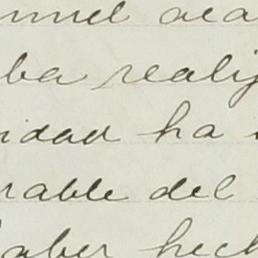 ba realiz
idad ha
rable del
aber hech